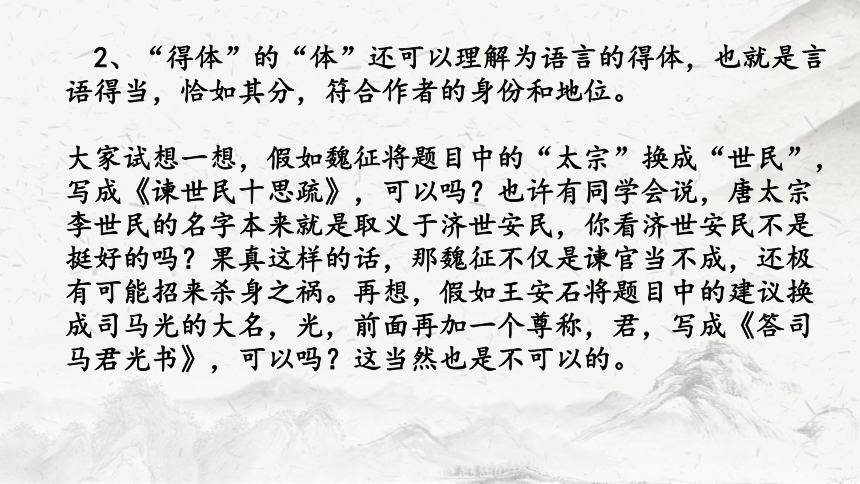 2、“得体”的“体”还可以理解为语言的得体，也就是言
语得当，恰如其分，符合作者的身份和地位。
大家试想一想，假如魏征将题目中的“太宗”换成“世民”，
写成《谏世民十思疏》，可以吗？也许有同学会说，唐太宗
李世民的名字本来就是取义于济世安民，你看济世安民不是
挺好的吗？果真这样的话，那魏征不仅是谏官当不成，还极
有可能招来杀身之祸。再想，假如王安石将题目中的建议换
成司马光的大名，光，前面再加一个尊称，君，写成《答司
马君光书》，可以吗？这当然也是不可以的。